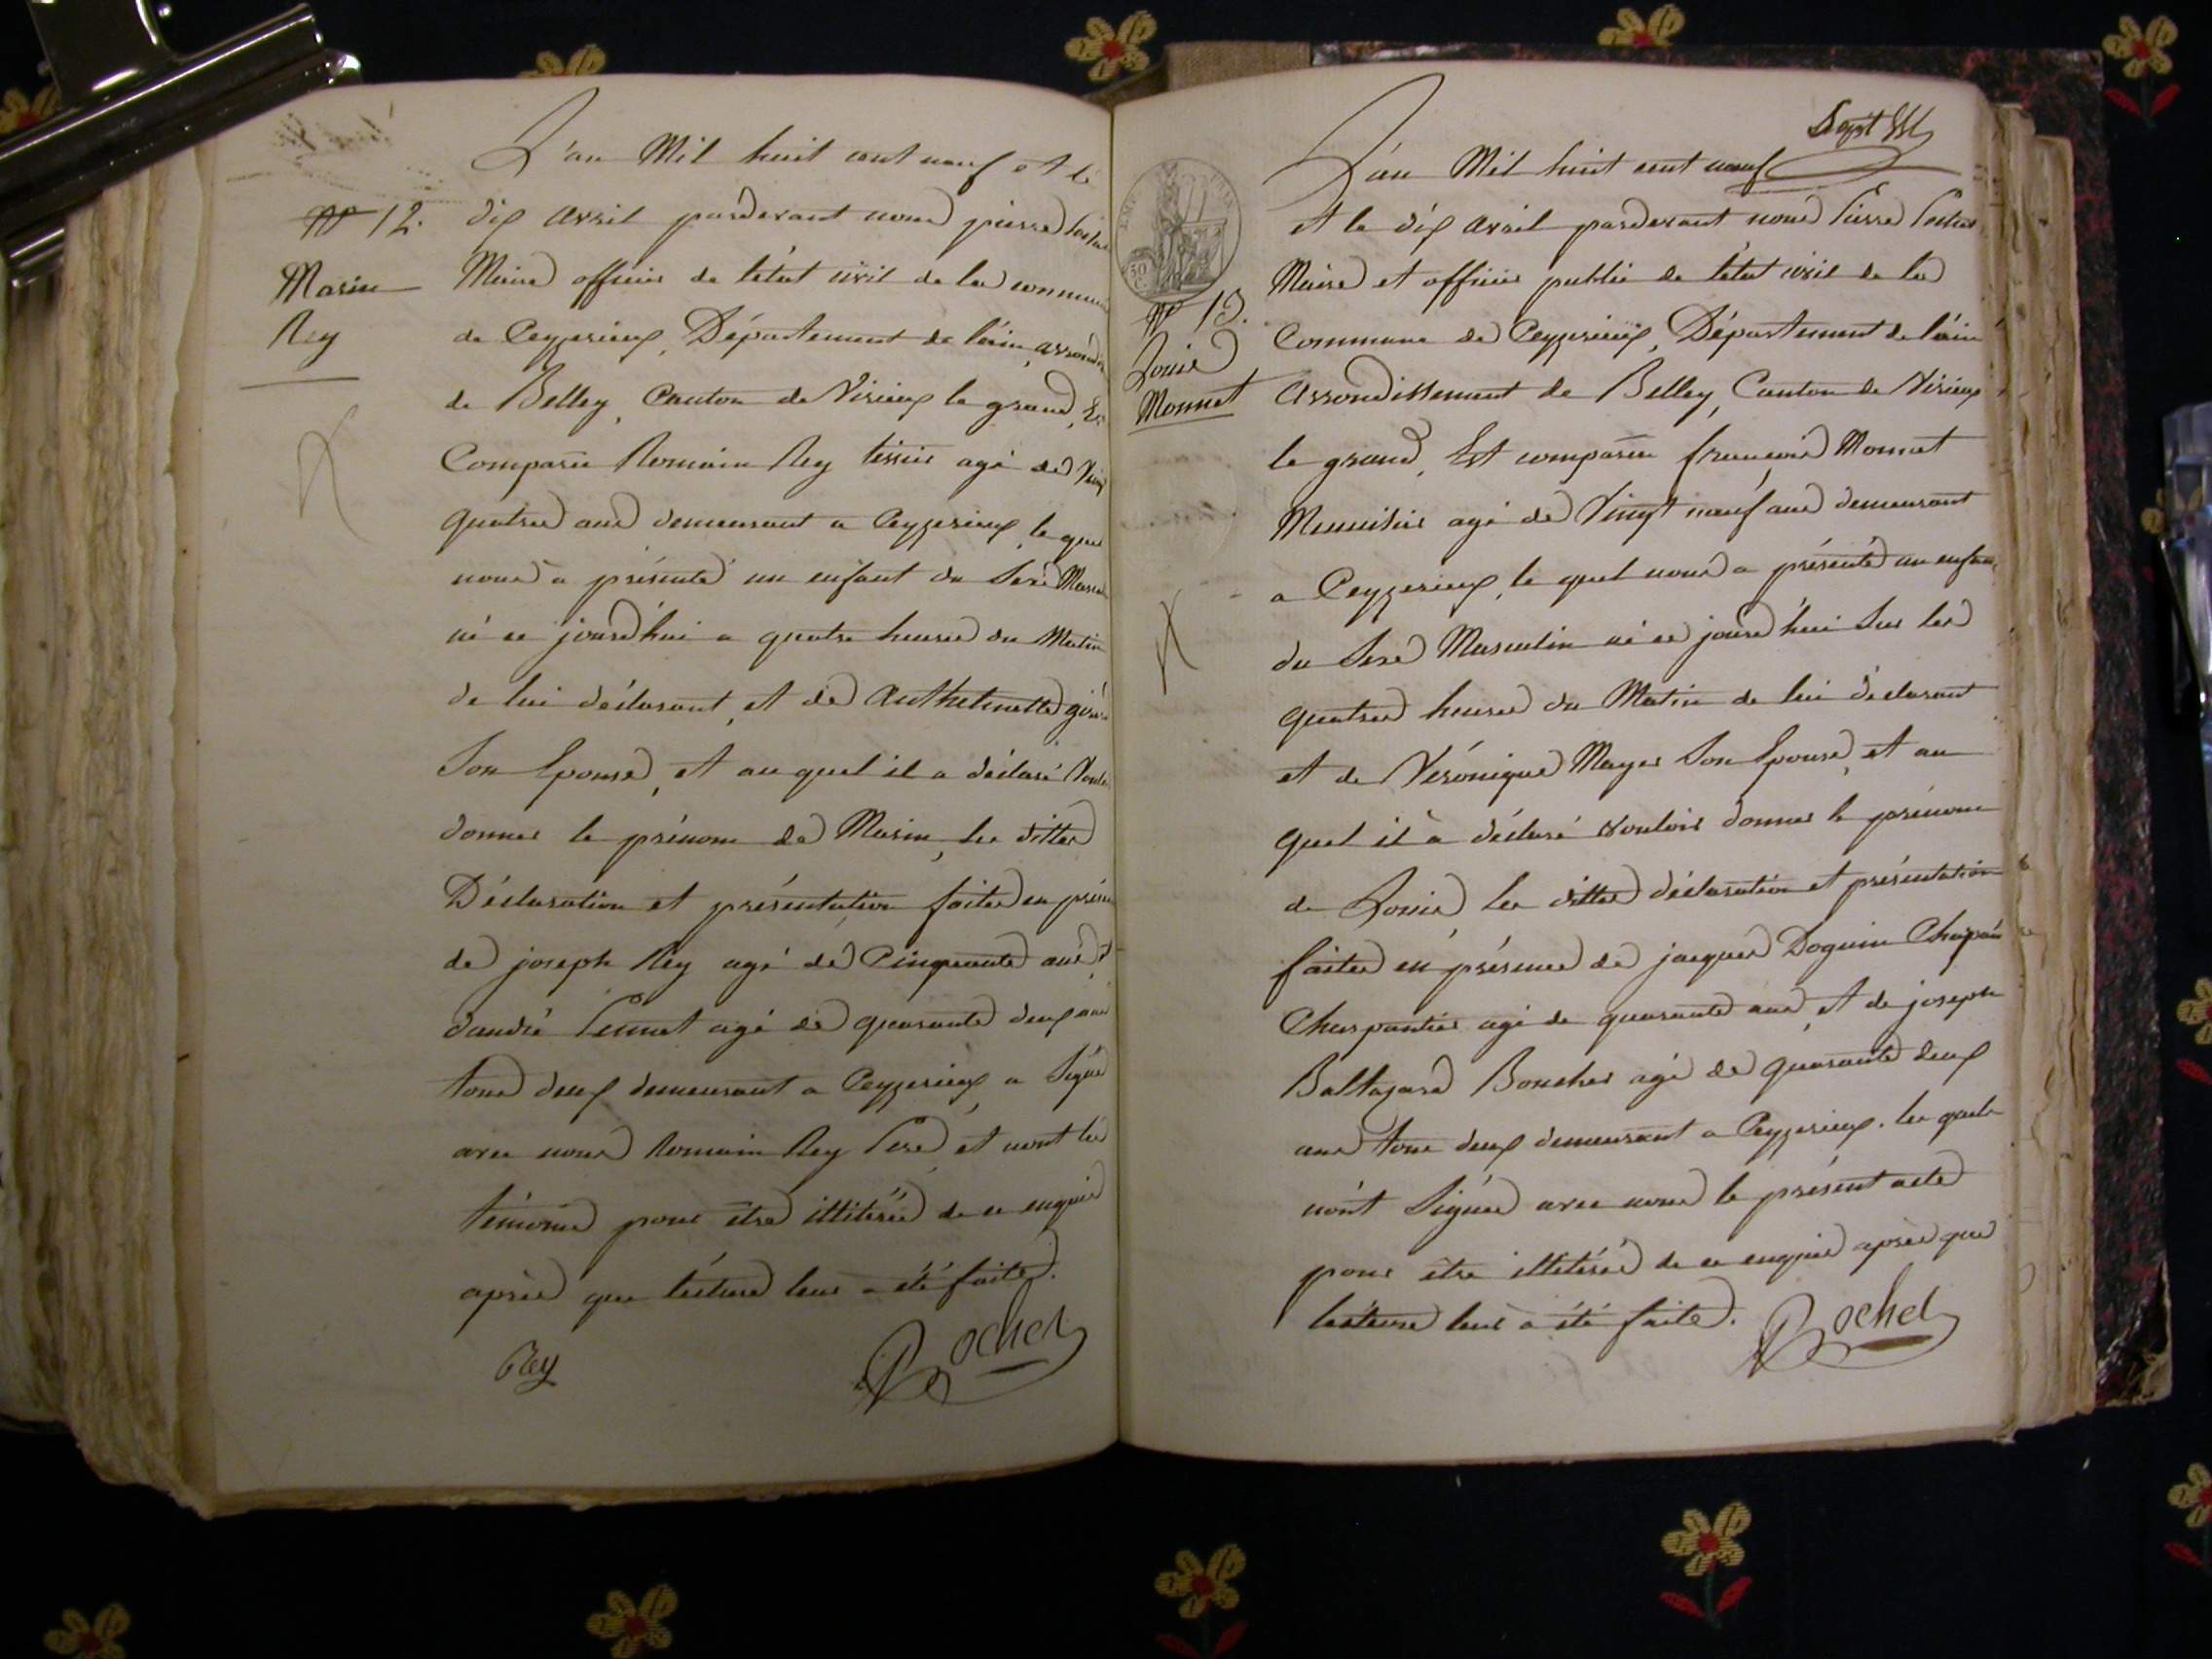 L'an Mil huit cent neuf et le
N° 12. dix avril pardevant nous pierre
Marin Maire officier de l'état civil de la commune
Rey de Ceyzerieux, Département de l'ain, arrond
de Belley, Canton de Virieux le grand, Est
Comparu Romain Rey tissier agé de Vingt
quatre ans demeurant a Ceyzerieux, le quel
nous a présenté un enfant du Sexe Mascu
né ce jourd'hui a quatre heures du Matin
de lui déclarant, et de Anthelmette
Son Epouse, et au quel il a déclaré Vouloir
donner le prénom de Marin, les dittes
Déclaration et présentation faites en prése
de joseph Rey agé de Cinquante ans, et
d'andré agé de quarante deux ans
tous deux demeurant a Ceyzerieux, a Signé
avec nous Romain Rey Pere, et nont les
témoins pour etre illiterés de ce enquis
après que lecture leur a été faite.
Rey Bochet
Sept
L'an Mil huit cent neuf
et le dix avril pardevant nous Pierre
Maire et officier public de l'état civil de la
N° 13. Commune de Ceyzerieux, Département de l'ain
Louis Arrondissement de Belley, Canton de Virieux
Monnet le grand, Est comparu françois Monnet
Menuisier agé de Vingt neuf ans demeurant
a Ceyzerieux, le quel nous a présenté un enfan
du Sexe Masculin né ce jourd'hui Sur les
quatres heures du Matin de lui déclarant
et de Véronique Mayer Son Epouse, et au
quel il à déclaré vouloir donner le prénom
de Louis, les dittes déclaration et présentation
faites en présence de jacques Doguin
Charpantier agé de quarante ans, et de joseph
Baltazard Boucher agé de quarante deux
ans tous deux demeurant a Ceyzerieux. les quels
nont Signés avec nous le présent acte
pour etre illiterés de ce enquis après que
lecture leur a été faite. Bochet